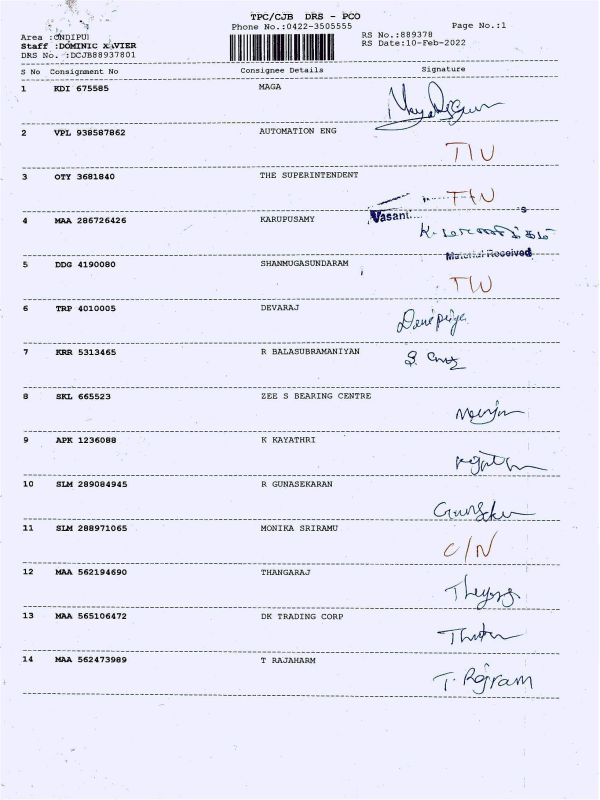 TPC/CJB DRS - PCO
Phone No.:0422-3505555
Page No.:1
Area :ONDIPU
RS No.:889378
Staff :DOMINIC XAVIER
RS Date:10-Feb-2022
DRS No. :DCJB88937801
S No Consignment No Consignee Details Signature
1 KDI 675585 MAGA
2 VPL 938587862 AUTOMATION ENG
3 OTY 3681840 THE SUPERINTENDENT
4 MAA 286726426 KARUPUSAMY Vasant
Material Received
5 DDG 4190080 SHANMUGASUNDARAM
6 TRP 4010005 DEVARAJ
7 KRR 5313465 R BALASUBRAMANIYAN
8 SKL 665523 ZEE S BEARING CENTRE
9 APK 1236088 K KAYATHRI
10 SLM 289084945 R GUNASEKARAN
11 SLM 288971065 MONIKA SRIRAMU C/N
12 MAA 562194690 THANGARAJ
13 MAA 565106472 DK TRADING CORP
14 MAA 562473989 T RAJAHARM T. Rajram